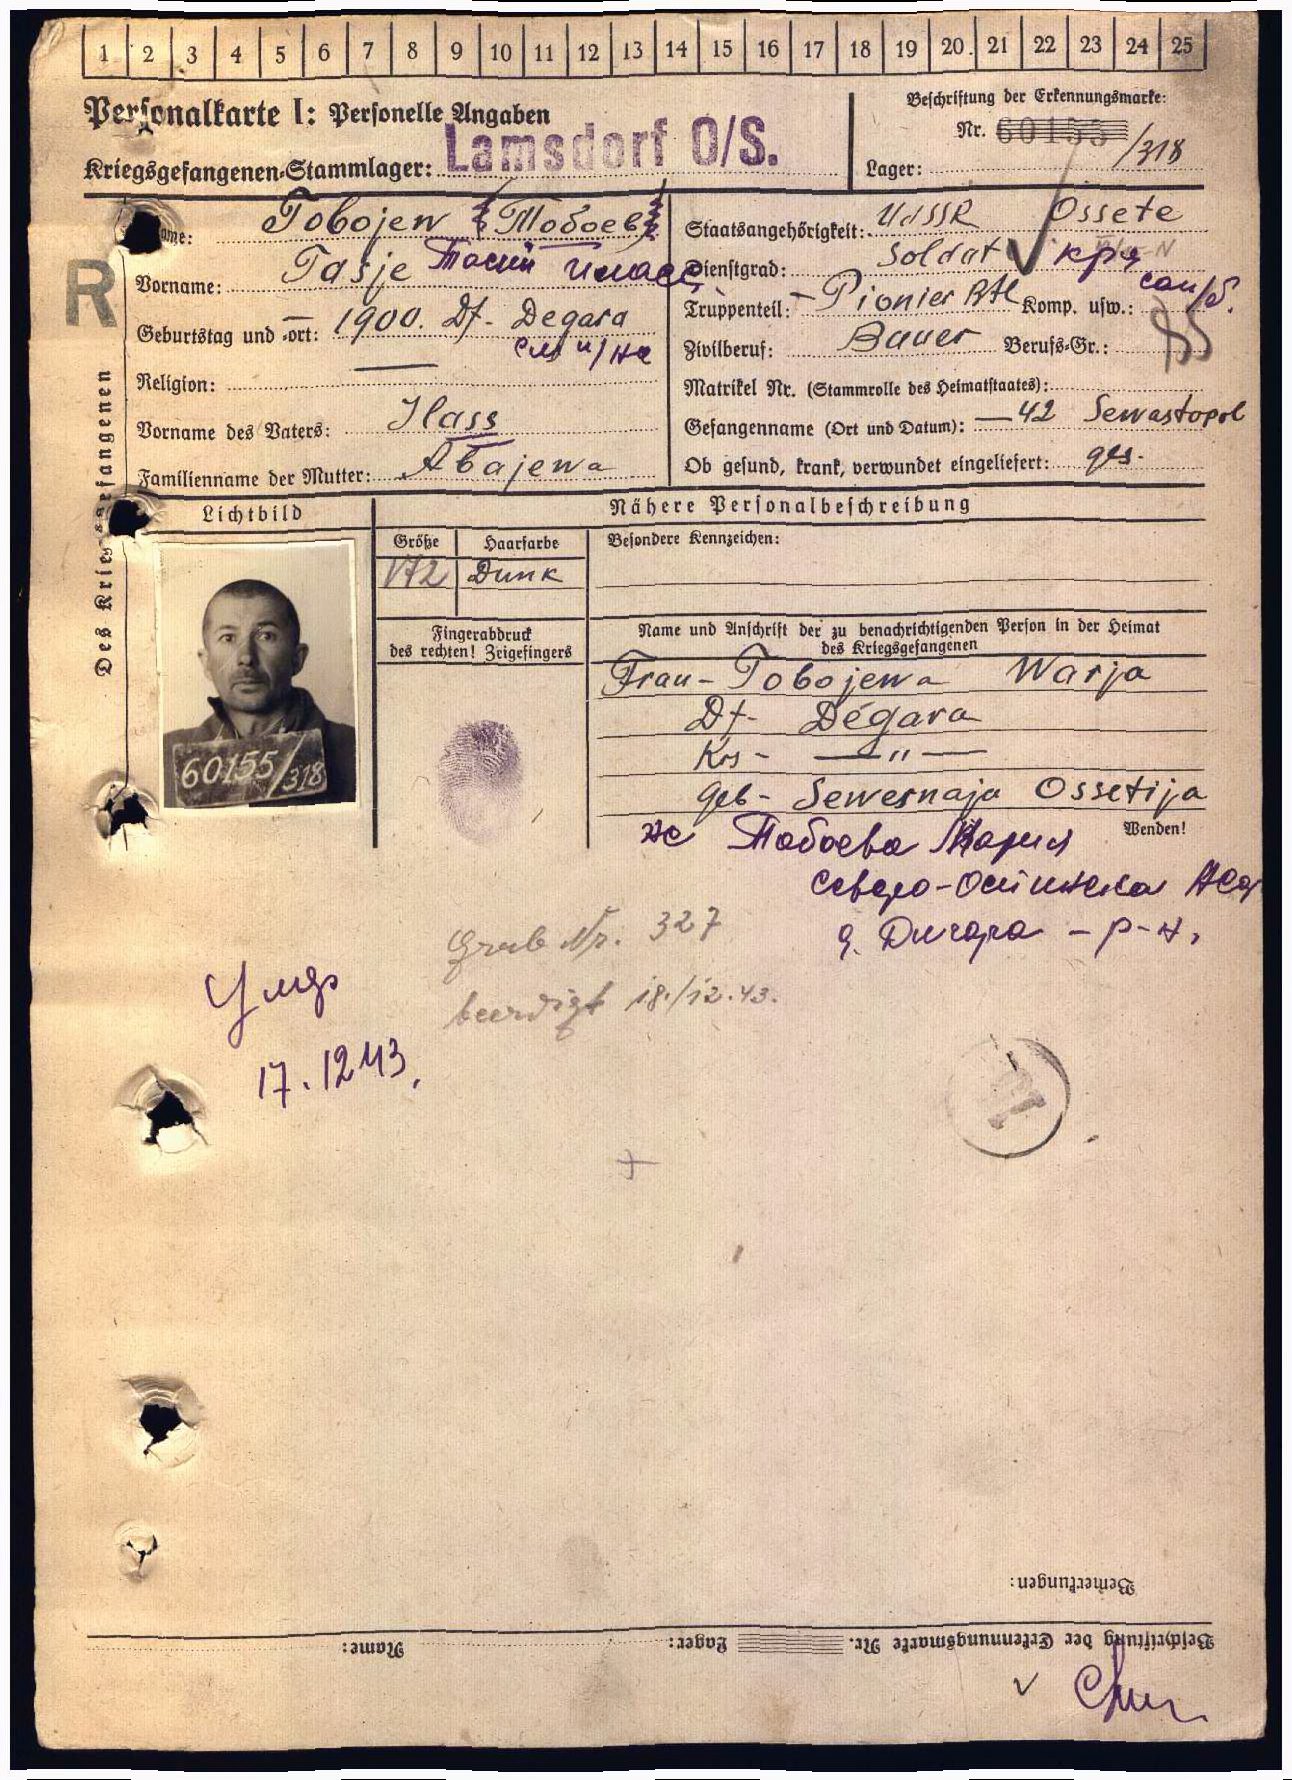 1 2 3 4 5 6 7 8 9 10 11 12 13 14 15 16 17 18 19 20 21 22 23 24 25
Personalkarte I: Personelle Angaben
Kriegsgefangenen-Stammlager: Lamsdorf O/S.
Beschriftung der Erkennungsmarke:
Nr. 60155 /318
Lager:
R
Des Kriegsgefangenen
Name: Tobojew (Тобоев)
Vorname: Tasje Тасий
Geburtstag und -ort: 1900. Df. Degara
Religion: —
Vorname des Vaters: Ilass
Familienname der Mutter: Abajewa
Staatsangehörigkeit: UdSSR Ossete
Dienstgrad: Soldat кр-ц
Truppenteil: Pionier Btl Komp. usw.: сап/б.
Zivilberuf: Bauer Berufs-Gr.:
Matrikel Nr. (Stammrolle des Heimatstaates):
Gefangenname (Ort und Datum): — 42 Sewastopol
Ob gesund, krank, verwundet eingeliefert: ges.
Lichtbild
60155/318
Nähere Personalbeschreibung
Größe Haarfarbe Besondere Kennzeichen:
172 Dunk
Fingerabdruck
des rechten! Zeigefingers
Name und Anschrift der zu benachrichtigenden Person in der Heimat
des Kriegsgefangenen
Frau - Tobojewa Warja
Df - Dégara
Krs - — " —
geb - Sewernaja Ossetija
Wenden!
же Тобоева Мария
Северо-Осетинская АССР
д. Дигара - р-н,
Grab Nr. 327
beerdigt 18./12.43.
Умер
17.12.43.
Bemerkungen:
Beschriftung der Erkennungsmarke Nr. Lager: Name: